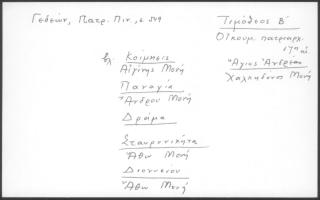 Γεδεών, Πατρ. Πιν., σ 549
Τιμόθεος Β΄
Οἰκουμ. πατριάρχ.
17ος αἰ
βλ. Κοίμησις
Αἰγίνης Μονή
Ἅγιος Ἀνδρέας
Χαλκηδόνος Μονή
Παναγία
Ἄνδρου Μονή
Δράμα
Σταυρονικήτα
Ἄθω Μονή
Διονυσίου
Ἄθω Μονή